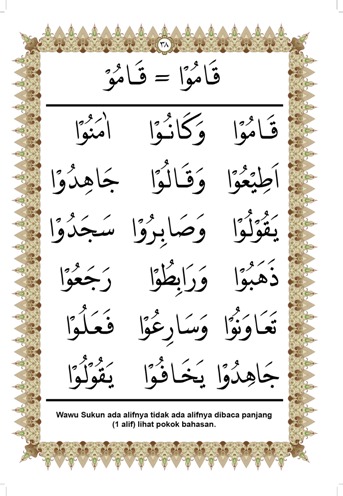 ٣٨
قَامُوْا = قَامُوْ
قَامُوْا وَكَانُوْا اٰمَنُوْا
اَطِيْعُوْا وَقَالُوْا جَاهِدُوْا
يَقُوْلُوْا وَصَابِرُوْا سَجَدُوْا
ذَهَبُوْا وَرَابِطُوْا رَجَعُوْا
تَعَاوَنُوْا وَسَارِعُوْا فَعَلُوْا
جَاهِدُوْا يَخَافُوْا يَقُوْلُوْا
Wawu Sukun ada alifnya tidak ada alifnya dibaca panjang
(1 alif) lihat pokok bahasan.